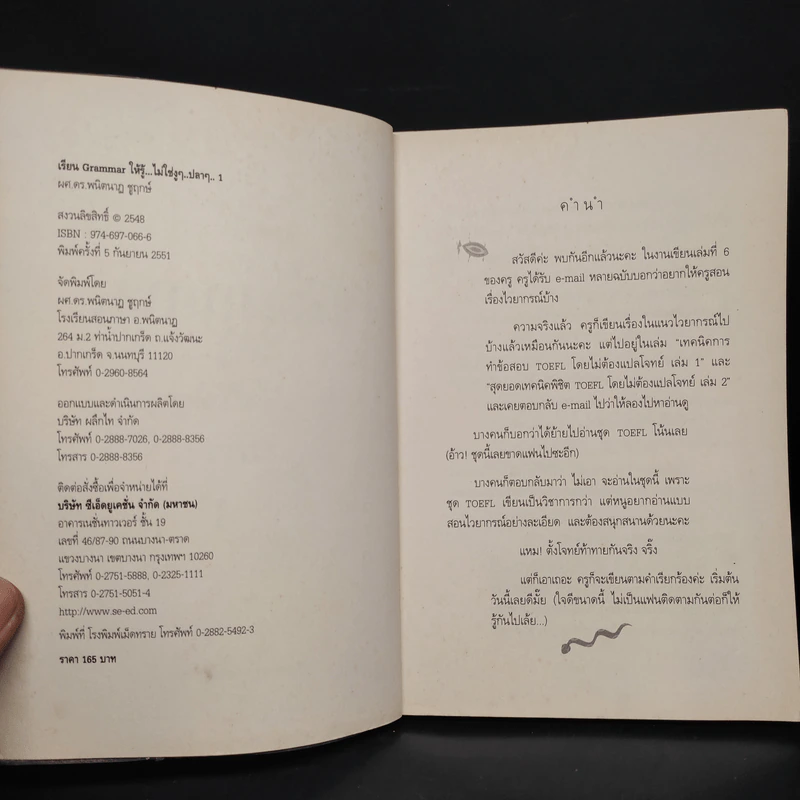 เรียน Grammar ให้รู้...ไม่ใช่งูๆ..ปลาๆ.. 1
ผศ.ดร.พนิตนาฏ ชูฤกษ์
สงวนลิขสิทธิ์ © 2548
ISBN : 974-697-066-6
พิมพ์ครั้งที่ 5 กันยายน 2551
จัดพิมพ์โดย
ผศ.ดร.พนิตนาฏ ชูฤกษ์
โรงเรียนสอนภาษา อ.พนิตนาฏ
264 ม.2 ท่าน้ำปากเกร็ด ถ.แจ้งวัฒนะ
อ.ปากเกร็ด จ.นนทบุรี 11120
โทรศัพท์ 0-2960-8564
ออกแบบและดำเนินการผลิตโดย
บริษัท ผลึกไท จำกัด
โทรศัพท์ 0-2888-7026, 0-2888-8356
โทรสาร 0-2888-8356
ติดต่อสั่งซื้อเพื่อจำหน่ายได้ที่
บริษัท ซีเอ็ดยูเคชั่น จำกัด (มหาชน)
อาคารเนชั่นทาวเวอร์ ชั้น 19
เลขที่ 46/87-90 ถนนบางนา-ตราด
แขวงบางนา เขตบางนา กรุงเทพฯ 10260
โทรศัพท์ 0-2751-5888, 0-2325-1111
โทรสาร 0-2751-5051-4
http://www.se-ed.com
พิมพ์ที่ โรงพิมพ์เม็ดทราย โทรศัพท์ 0-2882-5492-3
ราคา 165 บาท
คำนำ
สวัสดีค่ะ พบกันอีกแล้วนะคะ ในงานเขียนเล่มที่ 6
ของครู ครูได้รับ e-mail หลายฉบับบอกว่าอยากให้ครูสอน
เรื่องไวยากรณ์บ้าง
ความจริงแล้ว ครูก็เขียนเรื่องในแนวไวยากรณ์ไป
บ้างแล้วเหมือนกันนะคะ แต่ไปอยู่ในเล่ม "เทคนิคการ
ทำข้อสอบ TOEFL โดยไม่ต้องแปลโจทย์ เล่ม 1" และ
"สุดยอดเทคนิคพิชิต TOEFL โดยไม่ต้องแปลโจทย์ เล่ม 2"
และเคยตอบกลับ e-mail ไปว่าให้ลองไปหาอ่านดู
บางคนก็บอกว่าได้ย้ายไปอ่านชุด TOEFL โน้นเลย
(อ้าว! ชุดนี้เลยขาดแฟนไปซะอีก)
บางคนก็ตอบกลับมาว่า ไม่เอา จะอ่านในชุดนี้ เพราะ
ชุด TOEFL เขียนเป็นวิชาการกว่า แต่หนูอยากอ่านแบบ
สอนไวยากรณ์อย่างละเอียด และต้องสนุกสนานด้วยนะคะ
แหม! ตั้งโจทย์ท้าทายกันจริง จริ๊ง
แต่ก็เอาเถอะ ครูก็จะเขียนตามคำเรียกร้องค่ะ เริ่มต้น
วันนี้เลยดีมั๊ย (ใจดีขนาดนี้ ไม่เป็นแฟนติดตามกันต่อก็ให้
รู้กันไปเล้ย...)